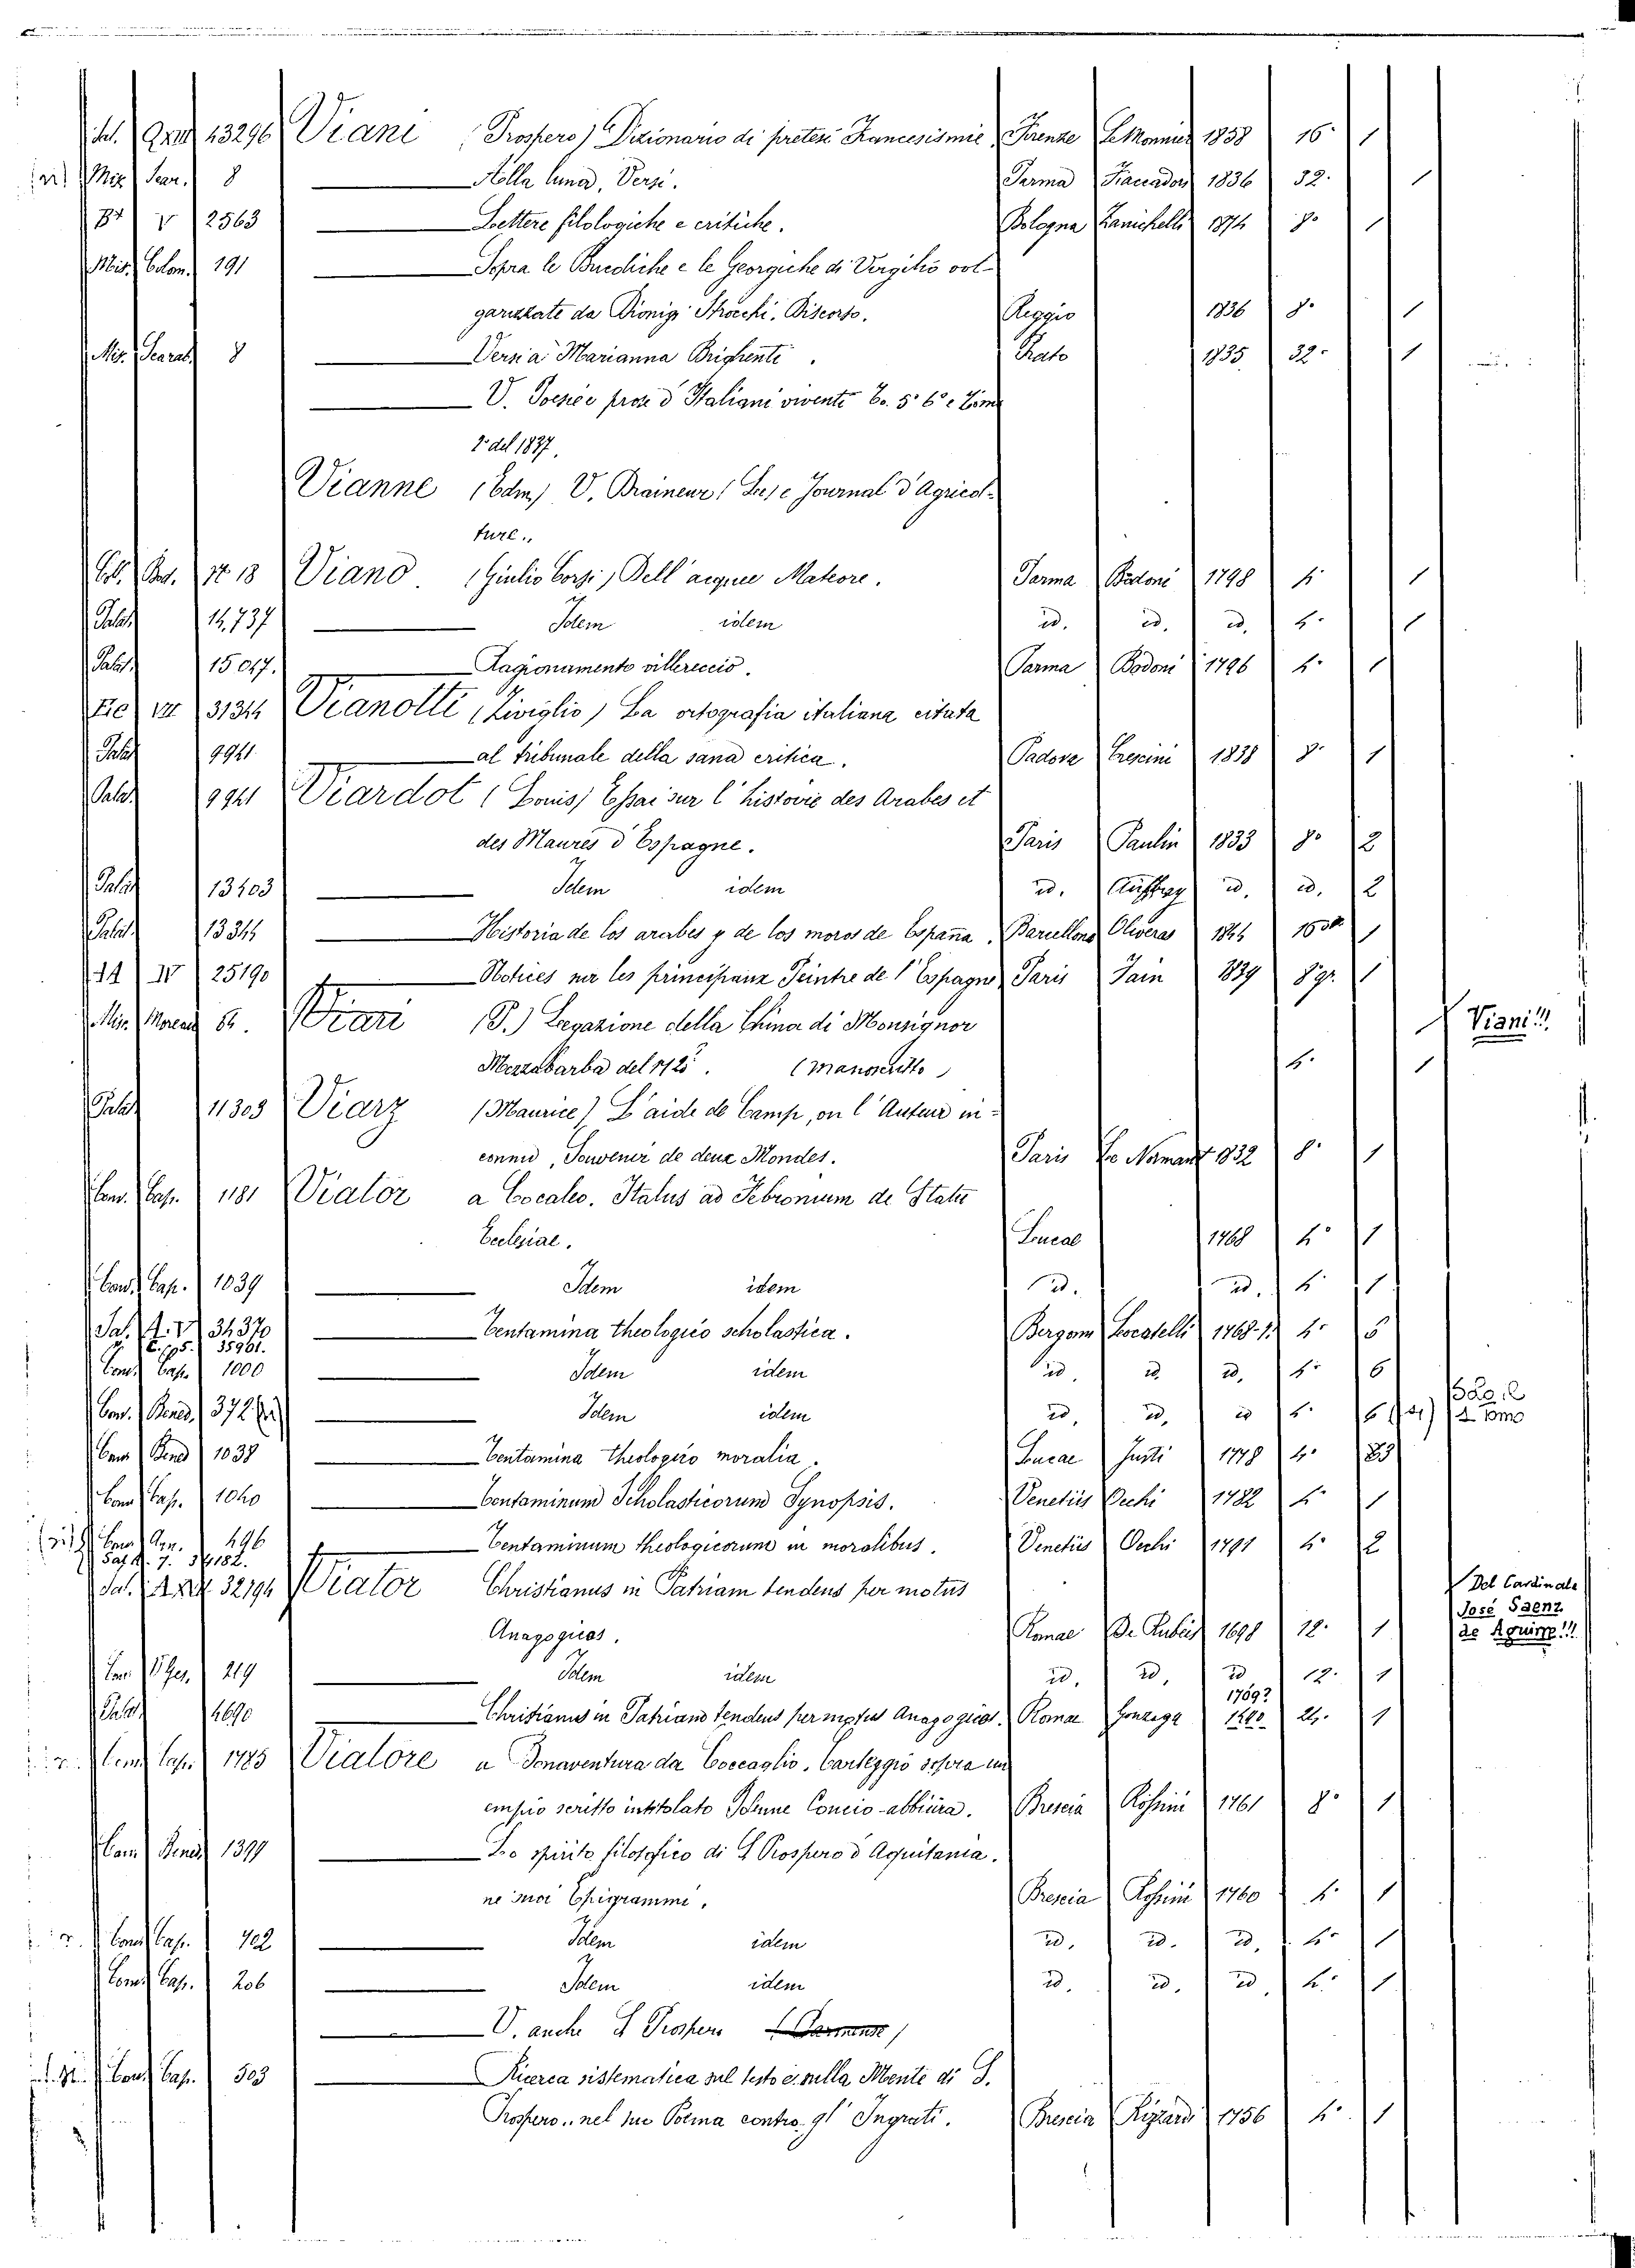 Sal. 13296 Viani (Prospero) Dizionario di pretesi Francesismi e Firenze Le Monnier 1858 16° 1
Mis. Scar. 8 Alla luna, Versi. Parma Fiaccadori 1836 32° 1
B4 V 2563 Lettere filologiche e critiche. Bologna Zanichelli 1874 8° 1
Mis. Colom. 191 Sopra le Bucoliche e le Georgiche di Vergilio vol-
garizzate da Dionigi Strocchi. Discorso. Reggio 1836 8° 1
Mis. Scarab. 8 Versi a Marianna Brighenti. Prato 1835 32° 1
V. Poesie e prose d'Italiani viventi To. 5° 6° e Tomo
2° del 1837.
Vianne (Edm) V. Braineur (Les) e Journal d'Agricol-
ture.
Viano (Giulio Corsi) Dell'acque Mateore. Parma Bodoni 1798 4° 1
Palat. 14.737 Idem idem id. id. id. 4° 1
Palat. 15047. Ragionamento villereccio. Parma Bodoni 1796 4° 1
VII 31314 Vianolli (Liviglio) La ortografia italiana citata
Palat. 9941 al tribunale della sana critica. Padova Crescini 1838 8° 1
Palat. 9941 Viardot (Louis) Essai sur l'histoire des Arabes et
des Maures d'Espagne. Paris Paulin 1833 8° 2
Palat. 13403 Idem idem id. id. id. 2
Palat. 13344 Historia de los arabes y de los moros de España. Barcellona Oliveras 1844 1
IV 25190 Notices sur les principaux Peintre de l'Espagne Paris 1839 8° gr. 1
Mis. Moreni 84. Viari (P.) Legazione della China di Monsignor Viani!!!
Mezzabarba del 1720. (manoscritto) 4° 1
Palat. 11303 Viarz (Maurice) L'aide de Camp, ou l'Auteur in-
connu, Souvenir de deux Mondes. Paris Le Normant 1832 8° 1
Conv. Cap. 1181 Viator a Cocaleo. Italus ad Febronium de Statu
Ecclesiae. Lucae 1768 4° 1
Conv. Cap. 1039 Idem idem id. id. 4° 1
Sal. 34370 Tentamina theologico scholastica. Bergomi Locatelli 4° 5
35961.
Conv. Cap. 1000 Idem idem id. id. id. 4° 6
Conv. Bened. 372 Idem idem id. id. id. 4° 6
Conv. Bened. 1038 Tentamina theologico moralia. Lucae Justi 1778 4° 3
Conv. Cap. 1040 Tentaminum Scholasticorum Synopsis. Venetiis Occhi 1782 4° 1
Conv. Ann. 496 Tentaminum theologicorum in moralibus. Venetiis Occhi 1791 4° 2
Sal. 32194 Viator Christianus in Patriam tendens per motus Del Cardinale
José Saenz
de Aguirre!!!
Anagogicos. Romae De Rubeis 1698 12° 1
219 Idem idem id. id. id. 12° 1
1709?
Palat. 4690 Christianus in Patriam tendens per motus Anagogicos. Romae Gonzaga 24° 1
Conv. Cap. 1785 Viatore a Bonaventura da Coccaglio. Carteggio sopra un
empio scritto intitolato Solenne Concio-abbiura. Brescia Rossini 1761 8° 1
Conv. Bened. 1399 Lo spirito filosofico di S. Prospero d'Aquitania.
ne suoi Epigrammi. Brescia Rossini 1760 4° 1
Conv. Cap. 702 Idem idem id. id. id. 4° 1
Conv. Cap. 206 Idem idem id. id. id. 4° 1
V. anche S. Prospero
Conv. Cap. 503 Ricerca sistematica sul testo e sulla Mente di S.
Prospero.. nel suo Poema contro gl'Ingrati. Brescia Rizzardi 1756 4° 1